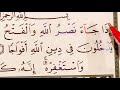 ذَا جَاءَ نَصْرُ اللَّهِ وَالْفَتْحُ
خُلُونَ فِي دِينِ اللَّهِ أَفْوَاجًا
وَاسْتَغْفِرْهُ إِنَّهُ